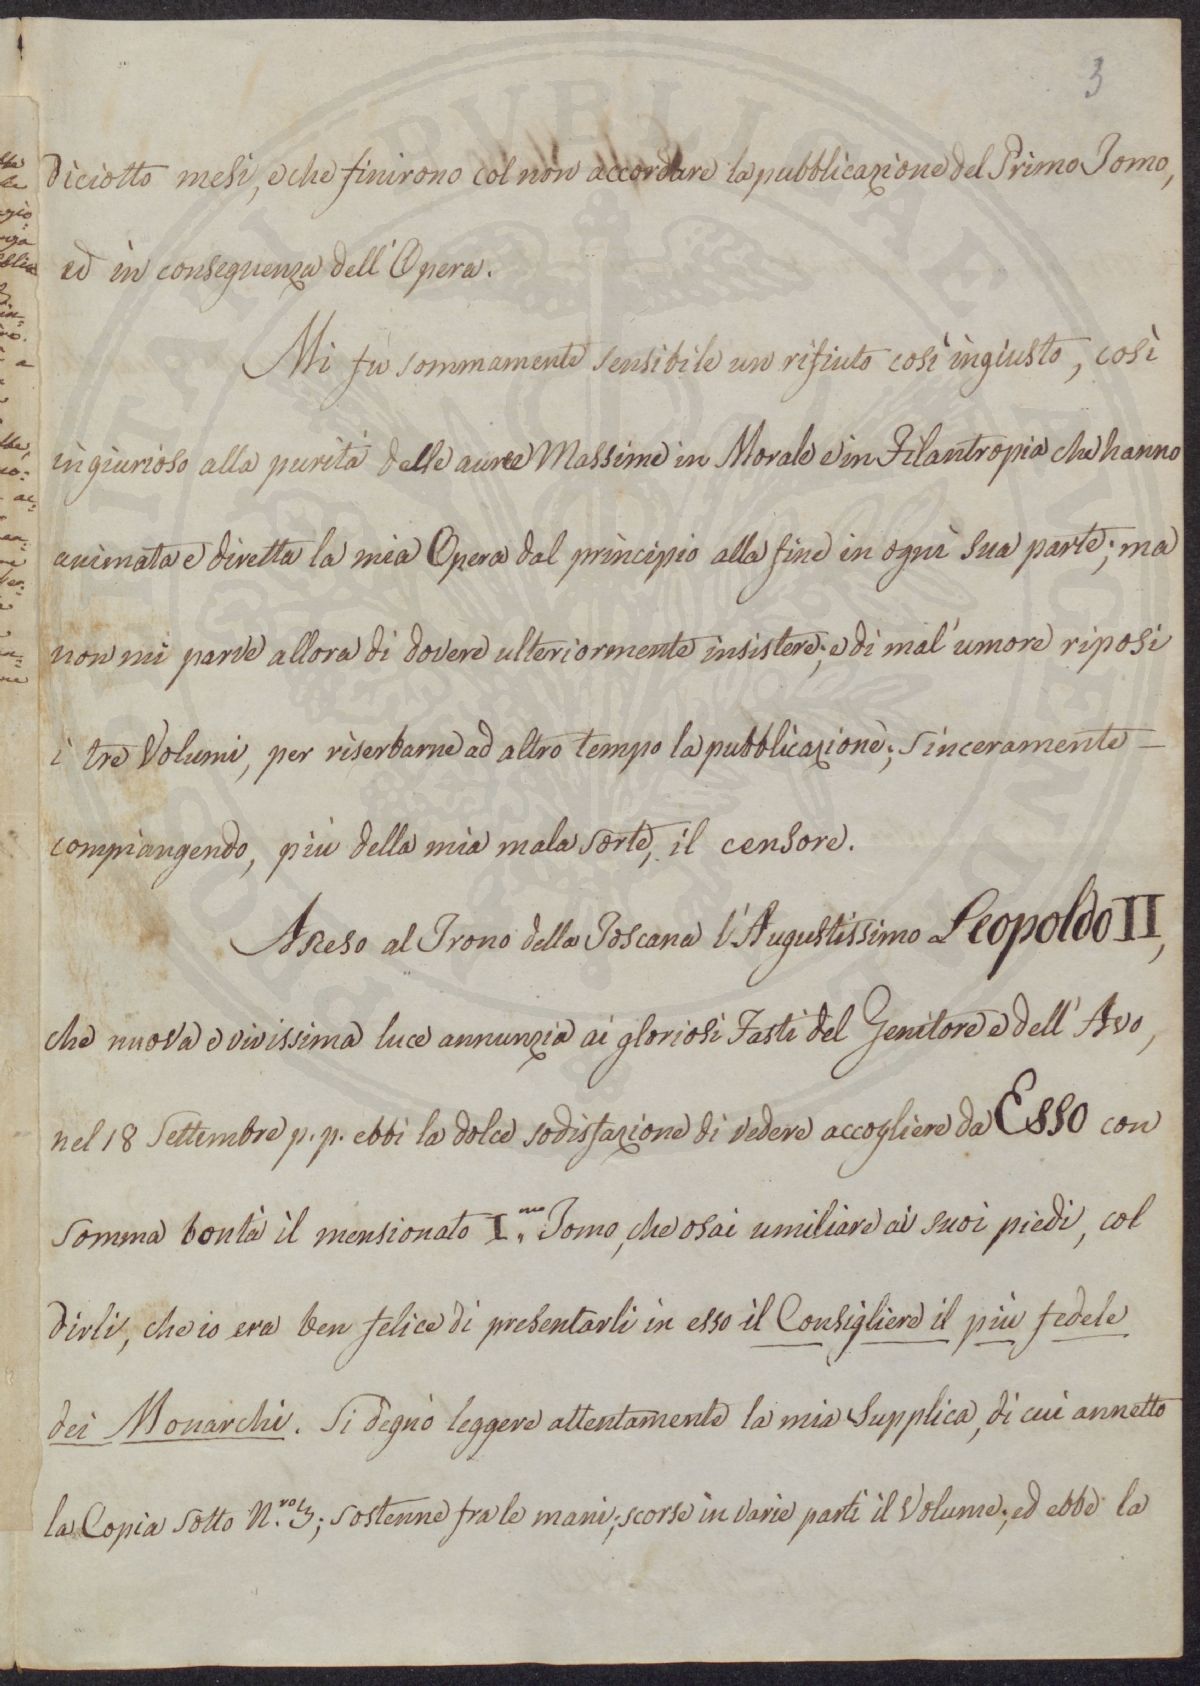 3
diciotto mesi, e che finirono col non accordare la pubblicazione del Primo Tomo,
ed in conseguenza dell'Opera.
Mi fù sommamente sensibile un rifiuto così ingiusto, così
ingiurioso alla purità delle auree Massime in Morale e in Filantropia che hanno
animata e diretta la mia Opera dal principio alla fine in ogni sua parte; ma
non mi parve allora di dovere ulteriormente insistere; e di mal'umore riposi
i tre Volumi, per riserbarne ad altro tempo la pubblicazione; sinceramente
compiangendo, più della mia mala sorte, il censore.
Asceso al Trono della Toscana l'Augustissimo Leopoldo II,
che nuova e vivissima luce annunzia ai gloriosi Fasti del Genitore e dell'Avo,
nel 18 Settembre p. p. ebbi la dolce sodisfazione di vedere accogliere da Esso con
somma bontà il mensionato I.mo Tomo, che osai umiliare ai suoi piedi, col
dirli, che io era ben felice di presentarli in esso il Consigliere il più fedele
dei Monarchi. Si degnò leggere attentamente la mia Supplica, di cui annetto
la Copia sotto N.ro 3; sostenne fra le mani, scorse in varie parti il Volume; ed ebbe la